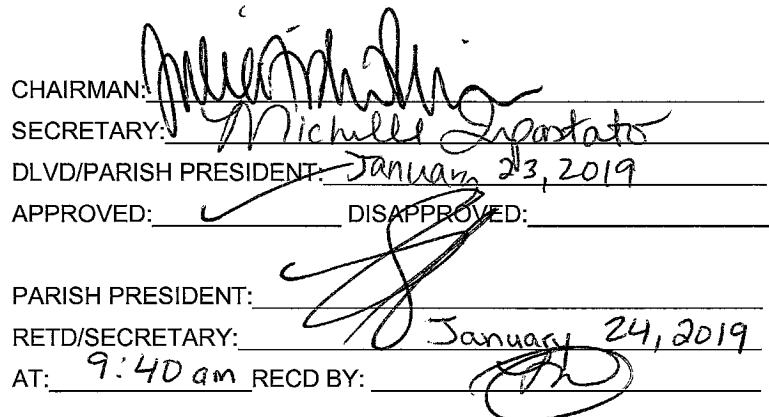 CHAIRMAN:
SECRETARY: Michelle Impastato
DLVD/PARISH PRESIDENT: January 23, 2019
APPROVED: ✓ DISAPPROVED:
PARISH PRESIDENT:
RETD/SECRETARY: January 24, 2019
AT: 9:40 am RECD BY: